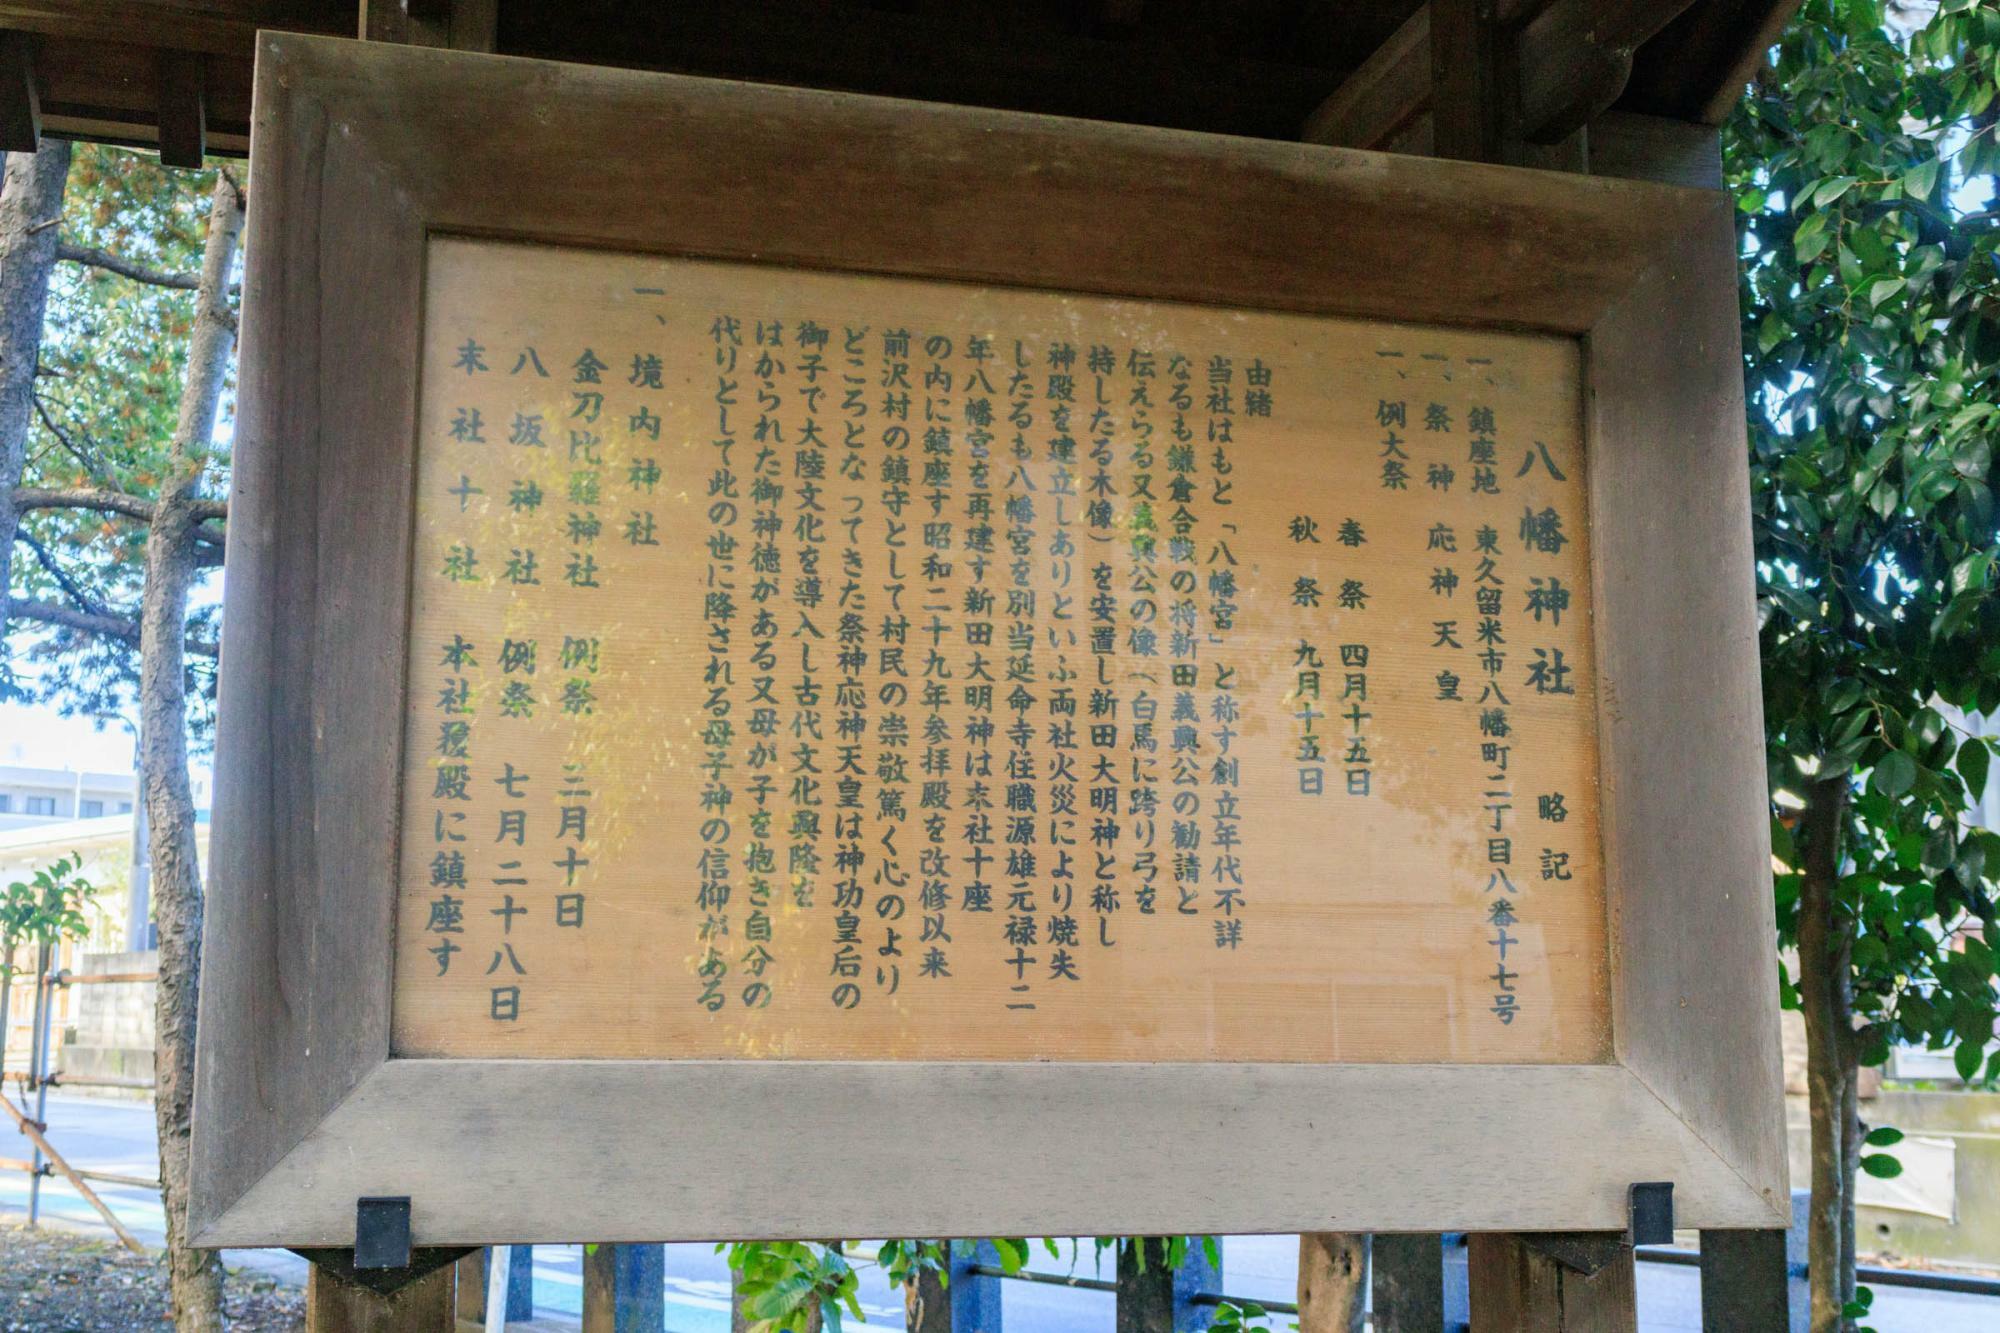 八幡神社 略記
一、鎮座地 東久留米市八幡町二丁目八番十七号
一、祭神 応神天皇
一、例大祭
春祭 四月十五日
秋祭 九月十五日
由緒
当社はもと「八幡宮」と称す創立年代不詳
なるも鎌倉合戦の将新田義興公の勧請と
伝えらる又義興公の像(白馬に跨り弓を
持したる木像)を安置し新田大明神と称し
神殿を建立しありといふ両社火災により焼失
したるも八幡宮を別当延命寺住職源雄元禄十二
年八幡宮を再建す新田大明神は末社十座
の内に鎮座す昭和二十九年参拝殿を改修以来
前沢村の鎮守として村民の崇敬篤く心のより
どころとなってきた祭神応神天皇は神功皇后の
御子で大陸文化を導入し古代文化興隆を
はかられた御神徳がある又母が子を抱き自分の
代りとして此の世に降される母子神の信仰がある
一、境内神社
金刀比羅神社 例祭 三月十日
八坂神社 例祭 七月二十八日
末社十社 本社覆殿に鎮座す